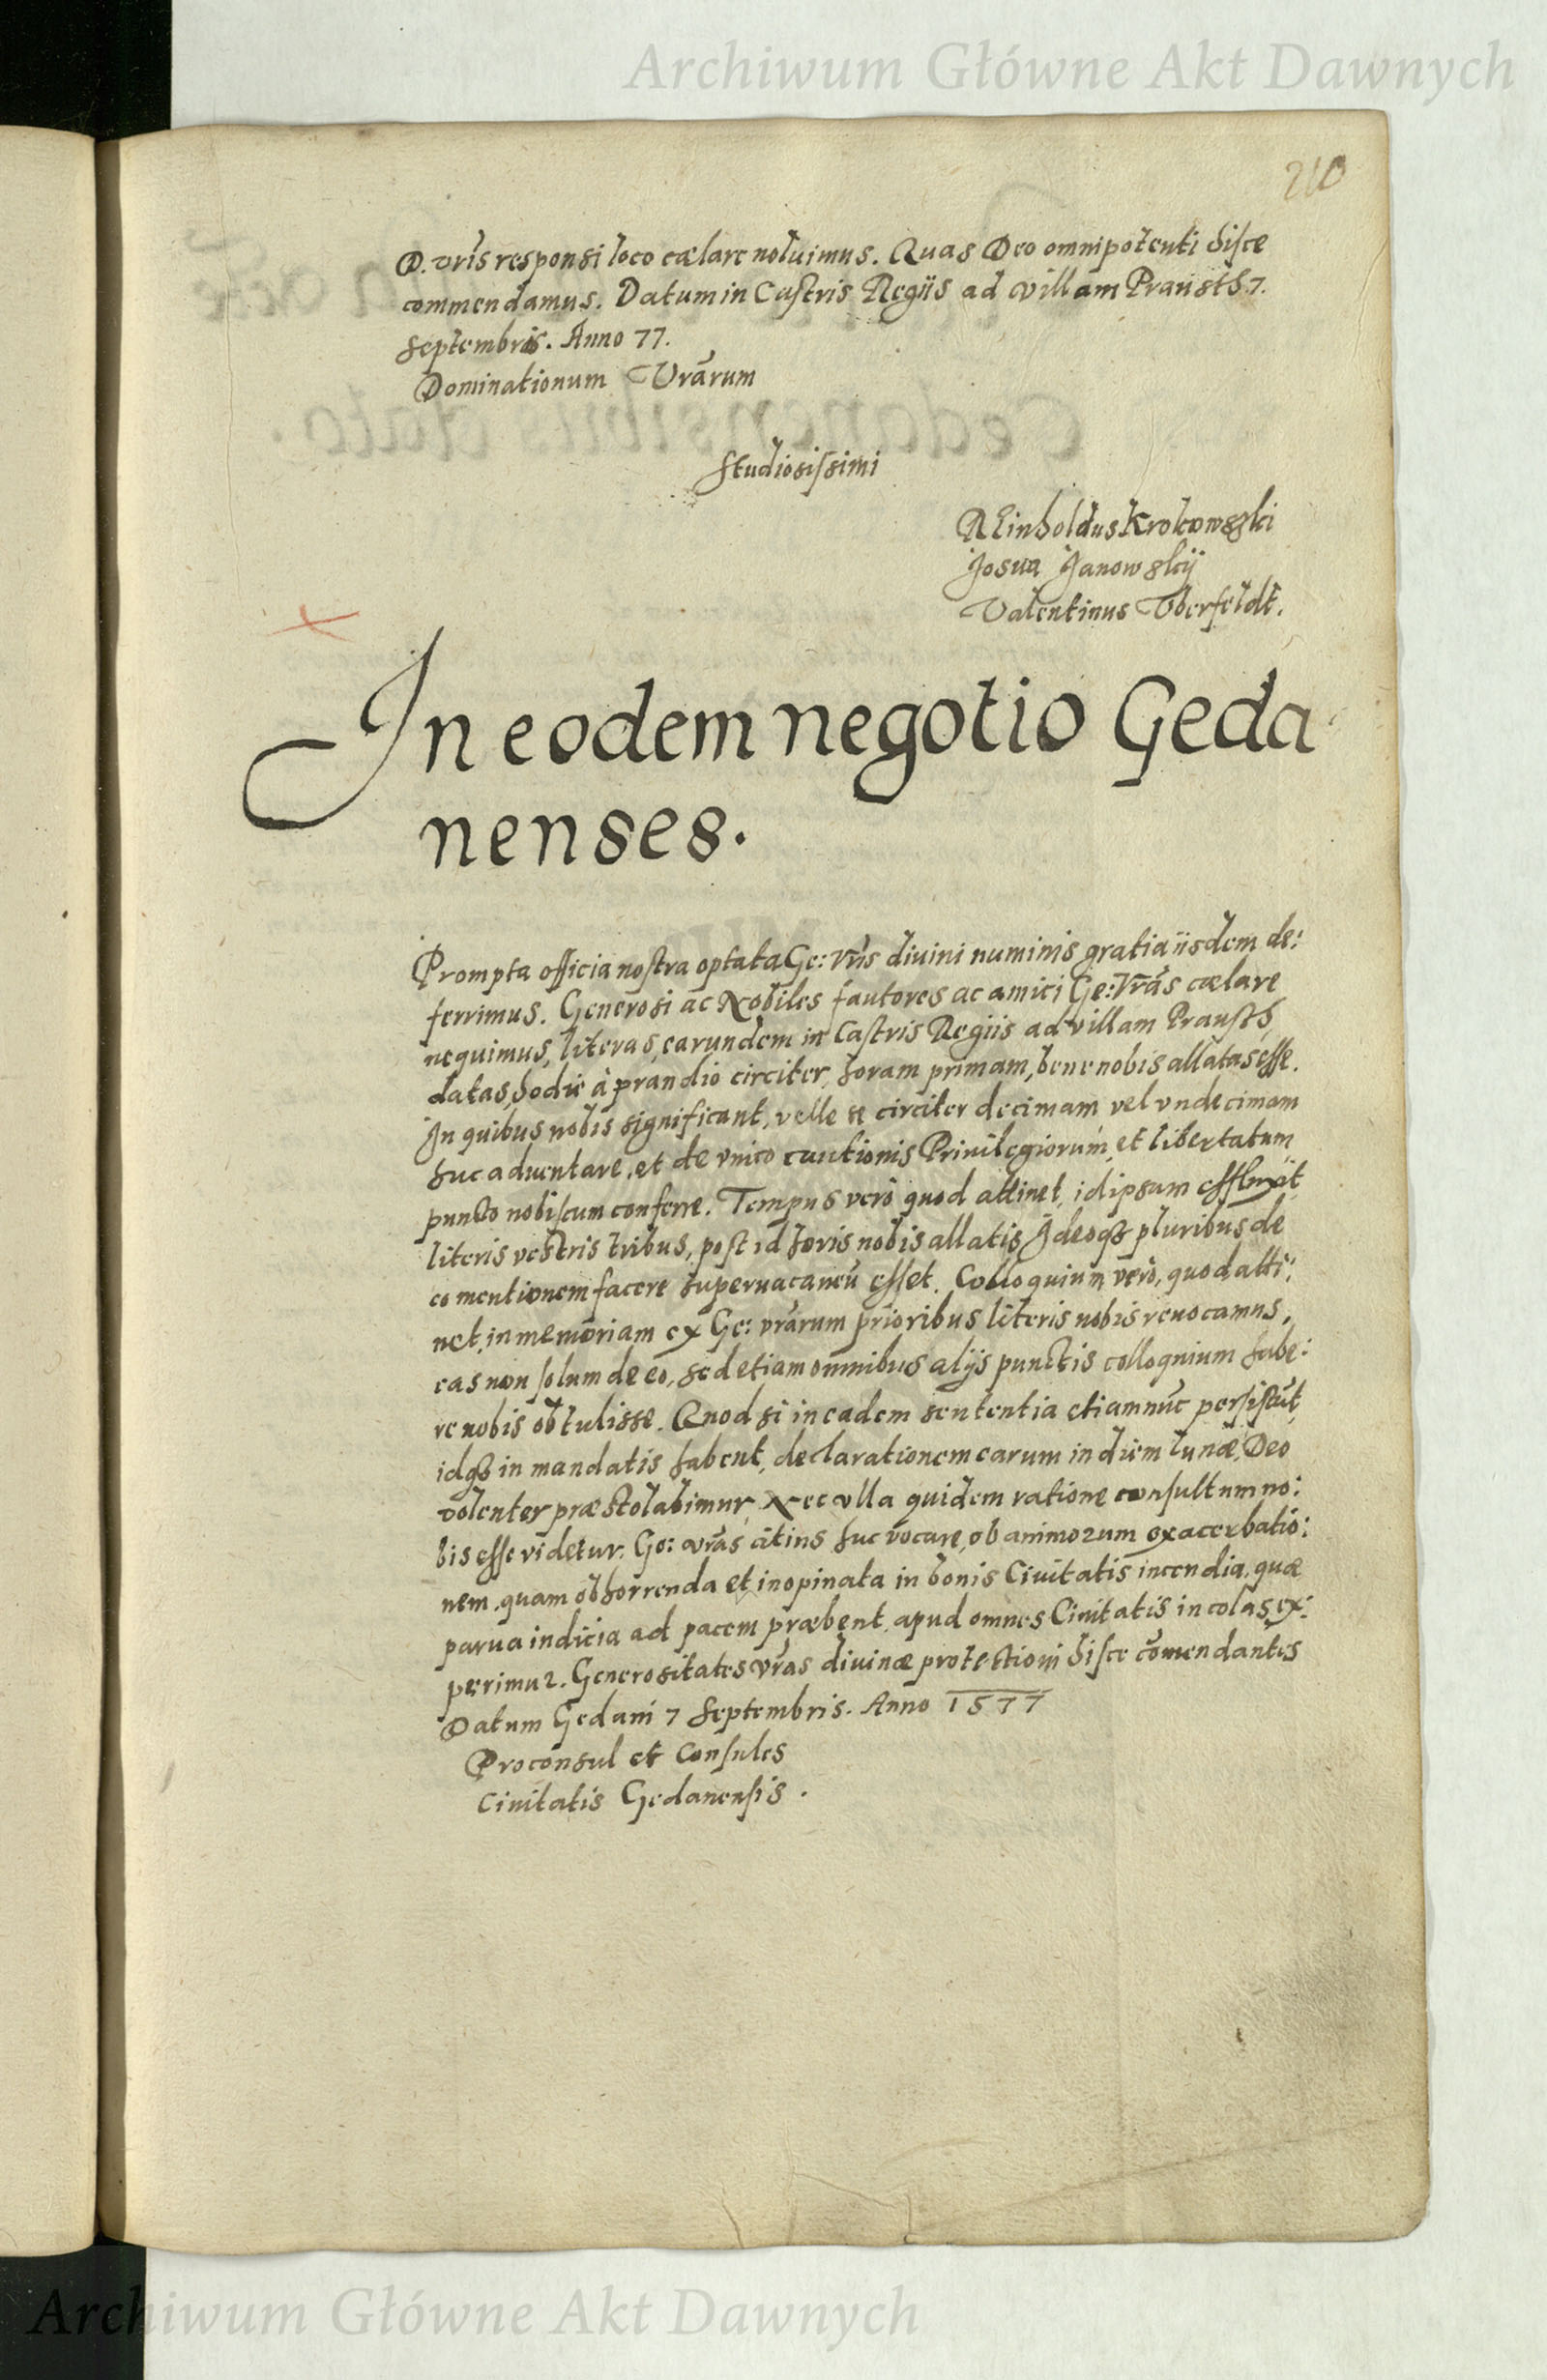 Archiwum Główne Akt Dawnych
210
D. vris responsi loco cælare noluimus. Quas Deo omnipotenti hisce
commendamus. Datum in Castris Regiis ad villam Prausth 7.
Septembris. Anno 77.
Dominationum Vrarum
Studiosissimi
REinholdus Krokowszki
Josua Janowskij
Valentinus Vberfeldt.
In eodem negotio Geda
nenses.
Prompta officia nostra optata Ge: Vris diuini numinis gratia iisdem de:
ferrimus. Generosi ac Nobiles fautores ac amici Ge: Vras cælare
nequimus, literas earundem in Castris Regiis ad villam Prausth
datas, hodie à prandio circiter horam primam, bene nobis allatas esse.
In quibus nobis significant, velle se circiter decimam vel vndecimam
huc aduentare, et de vnico cautionis Priuilegiorum et libertatum
puncto nobiscum conferre. Tempus verò quod attinet, id ipsum effluxit
literis vestris tribus, post id horis nobis allatis, Ideoq3 pluribus de
eo mentionem facere superuacaneũ esset. Colloquium verò, quod atti:
net, in memoriam ex Ge: vrarum prioribus literis nobis reuocamus,
eas non solum de eo, sed etiam omnibus alijs punctis colloquium habe:
re nobis obtulisse. Quod si in eadem sententia etiamnũc persistũt
idq3 in mandatis habent, declarationem earum in diem lunæ, Deo
volenter præstolabimur, Nec vlla quidem ratione consultum no:
bis esse videtur. Ge: vras citius huc vocare, ob animorum exacerbatio:
nem, quam ob horrenda et inopinata in bonis Ciuitatis incendia, quæ
parua indicia ad pacem præbent, apud omnes Ciuitatis incolas ex:
perimur. Generositates vras diuinæ protectioni hisce cõmendantes
Datum Gedani 7 Septembris. Anno 1577
Proconsul et Consules
Ciuitatis Gedanensis.
Archiwum Główne Akt Dawnych